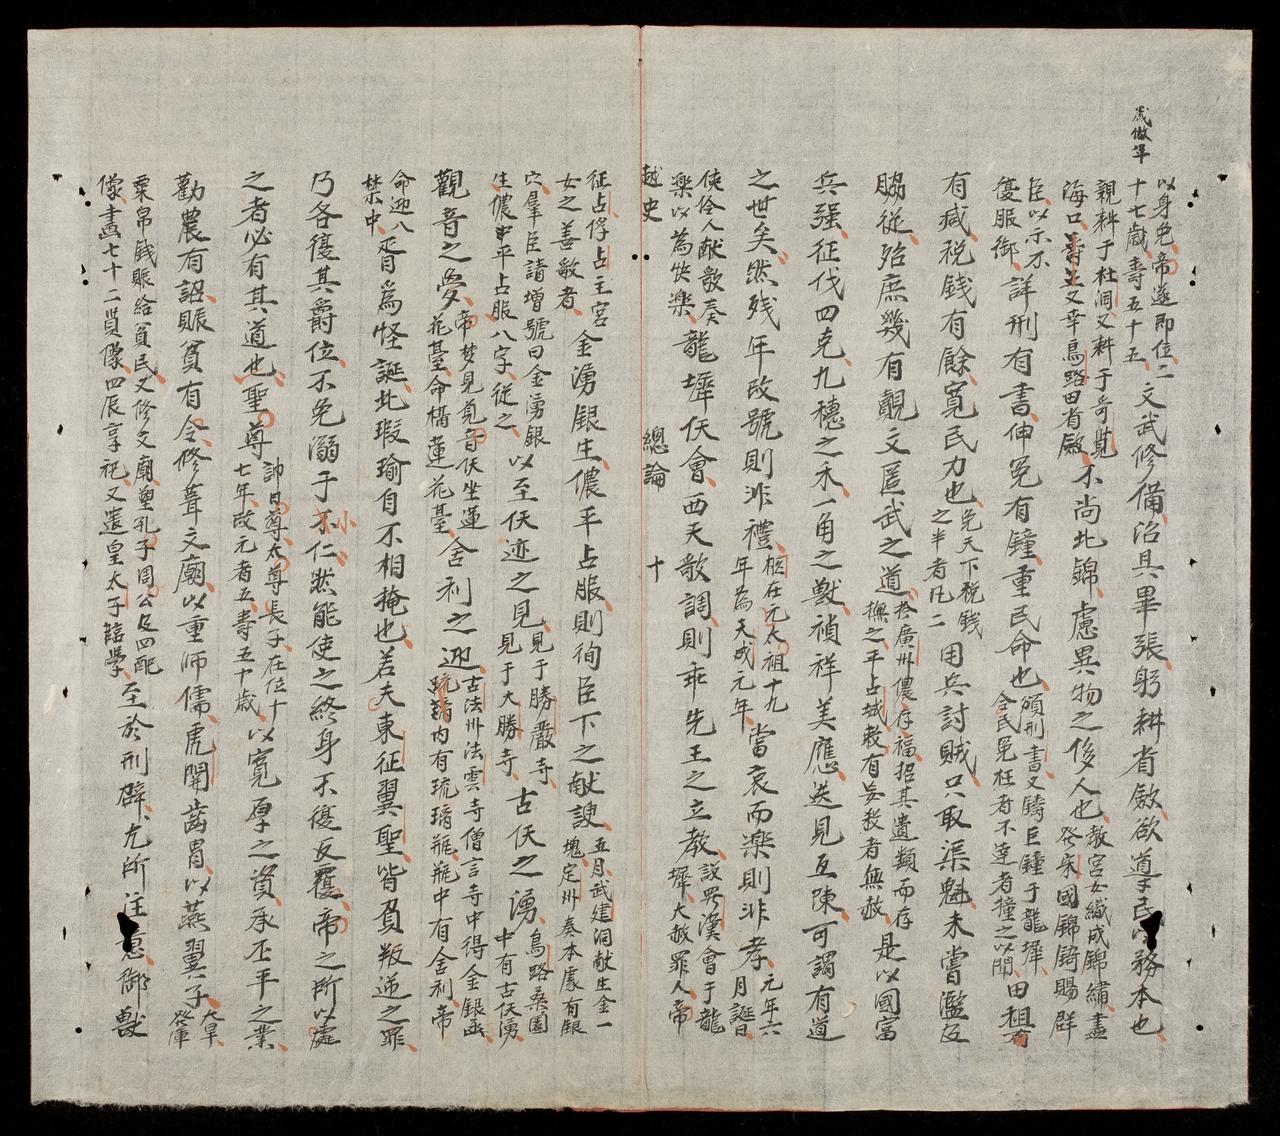 歲做年
以身免、帝遂即位二
十七歲壽五十五、
文武修備、治具畢張、躬耕省斂、欲導民以務本也、
親耕于杜洞又耕于
海口
又幸烏路田省斂、
不尚北錦、慮異物之侈人也、
教宮女織成錦繡、盡
發宋國錦綺賜群
臣、以示不
復服御、
詳刑有書、伸冤有鐘、重民命也、
頒刑書、又鑄巨鐘于龍墀、
令民冤枉者不達者撞之以聞、
田租
有減、稅錢有餘、寬民力也、
免天下稅錢
之半者凡二
用兵討賊、只取渠魁、未嘗濫及
脇從、殆庶幾有覿文匿武之道、
於廣州儂存福招其遺類而存
撫之平占城敕有妄殺者無赦、
是以國富
兵强、征伐四克、九穗之禾、一角之獸、禎祥美應、迭見互陳、可謂有道
之世矣、然殘年改號則非禮、
在元太祖十九
年為天成元年、
當哀而樂則非孝、
元年六
月誕日、
使伶人献歌奏
樂以為快樂、
龍墀仸會、西天歌調、則乖先王之立教、
設仸漢會于龍
墀、大赦罪人、帝
越史　總論　十
征占俘占主宮
女之善歌者、
金湧銀生、儂平占服、則徇臣下之献諛、
五月武建洞献生金一
塊、定州奏本處有銀
穴、羣臣請增號曰金湧銀
生儂平占服八字、從之、
以至仸迹之見、
見于勝嚴寺、
見于大勝寺、
古仸之湧、
烏路桑園
中有古仸湧、
觀音之夢、
帝梦見觀音仸坐蓮
花臺、命構蓮花臺、
舍利之迎、
古法州法雲寺僧言寺中得金銀函、
琉璃內有琉璃瓶、瓶中有舍利、帝
命迎入
禁中、
胥爲怪誕、此瑕瑜自不相掩也、若夫東征翼聖皆負叛逆之罪、
乃各復其爵位、不免溺于小不仁、然能使之終身不復反覆、帝之所以處
之者必有其道也、聖尊
帥日尊、太尊長子在位十
七年、改元者五、壽五十歲、
以寬厚之資、承丕平之業、
勸農有詔、賑貧有令、修葺文廟、以重師儒、虎闈齒胄、以燕翼子、
大旱發庫
粟帛錢賑給貧民、又修文廟、塑孔子周公及四配
像、畫七十二賢像、四辰享祀、又遣皇太子臨學、
至於刑辟、尤所注意、御獸